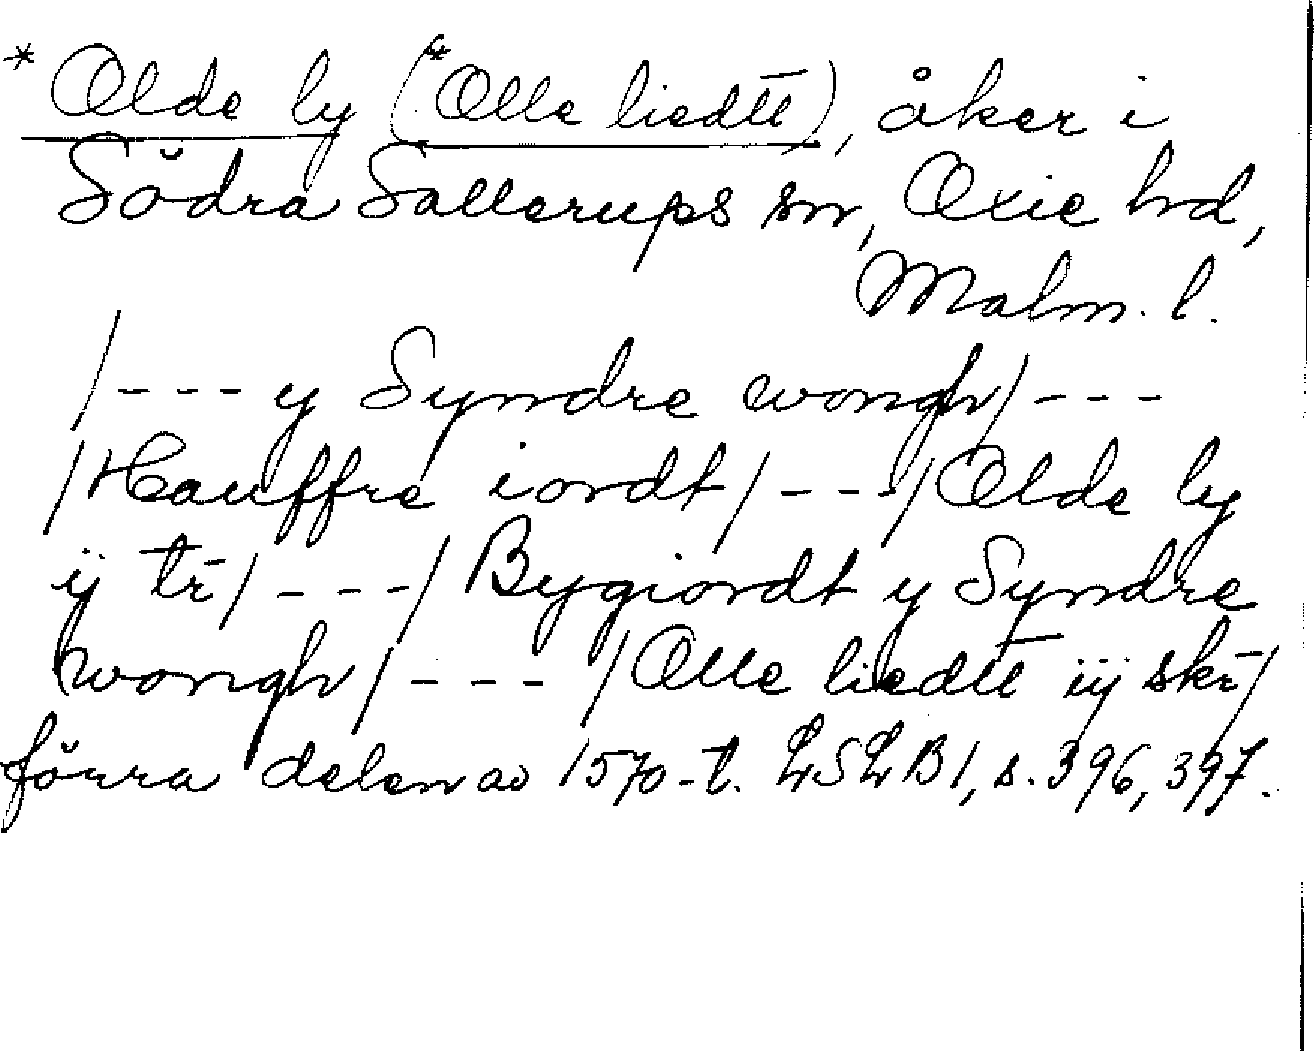 *Olde ly (*Olle liedtt̅), åker i
Södra Sallerups sn, Oxie hd,
Malm. l.
/--- y Syndre wongh/---
/Hauffre iordt/---/Olde ly
ij tr̅/---/Bygiordt y Syndre
wongh/---/Olle liedtt̅ iij skr̅/
förra delen av 1570-t. LSLB1, s. 396, 397.